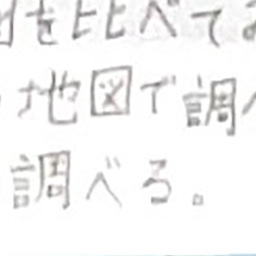 を比べて
地図で調べ
調べる。